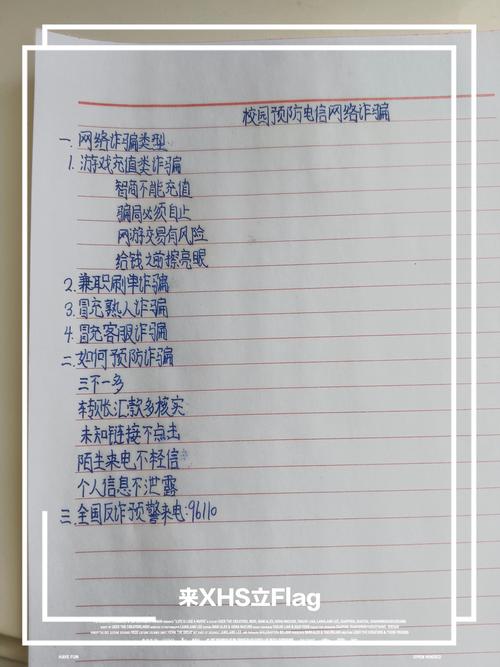 校园预防电信网络诈骗
一.网络诈骗类型
1.游戏充值类诈骗
智商不能充值
骗局必须自止
网游交易有风险
给钱之前擦亮眼
2.兼职刷单诈骗
3.冒充熟人诈骗
4.冒充客服诈骗
二.如何预防诈骗
三不一多
转账汇款多核实
未知链接不点击
陌生来电不轻信
个人信息不泄露
三.全国反诈预警来电:96110
来XHS立Flag
HAVE FUN